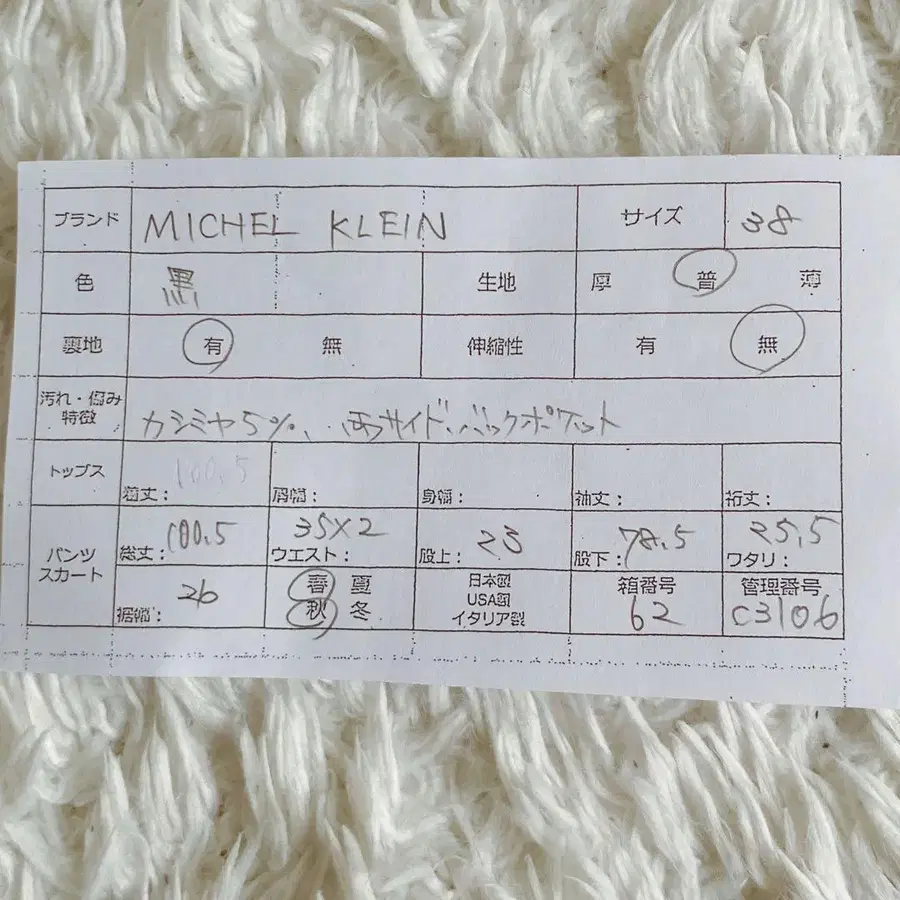 ブランド MICHEL KLEIN サイズ 38
色 黒 生地 厚 普 薄
裏地 有 無 伸縮性 有 無
汚れ・傷み
特徴 カシミヤ5%、両サイド、バックポケット
トップス 100.5
着丈: 肩幅: 身幅: 袖丈: 裄丈:
パンツ
スカート
100.5 35×2 23 78.5 25.5
総丈: ウエスト: 股上: 股下: ワタリ:
26
裾幅:
春 夏
秋 冬
日本製
USA製
イタリア製
箱番号
62
管理番号
C3106